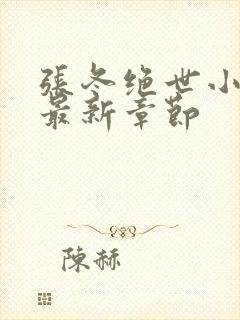 張冬绝世小
最新章節
陳赫